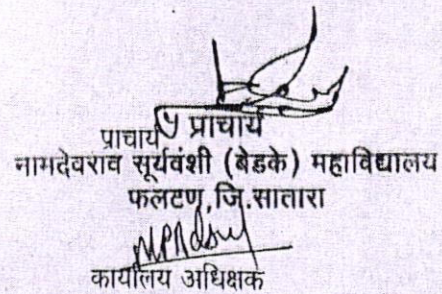 प्राचार्य प्राचार्य
नामदेवराव सूर्यवंशी (बेडके) महाविद्यालय
फलटण,जि.सातारा
कार्यालय अधिक्षक